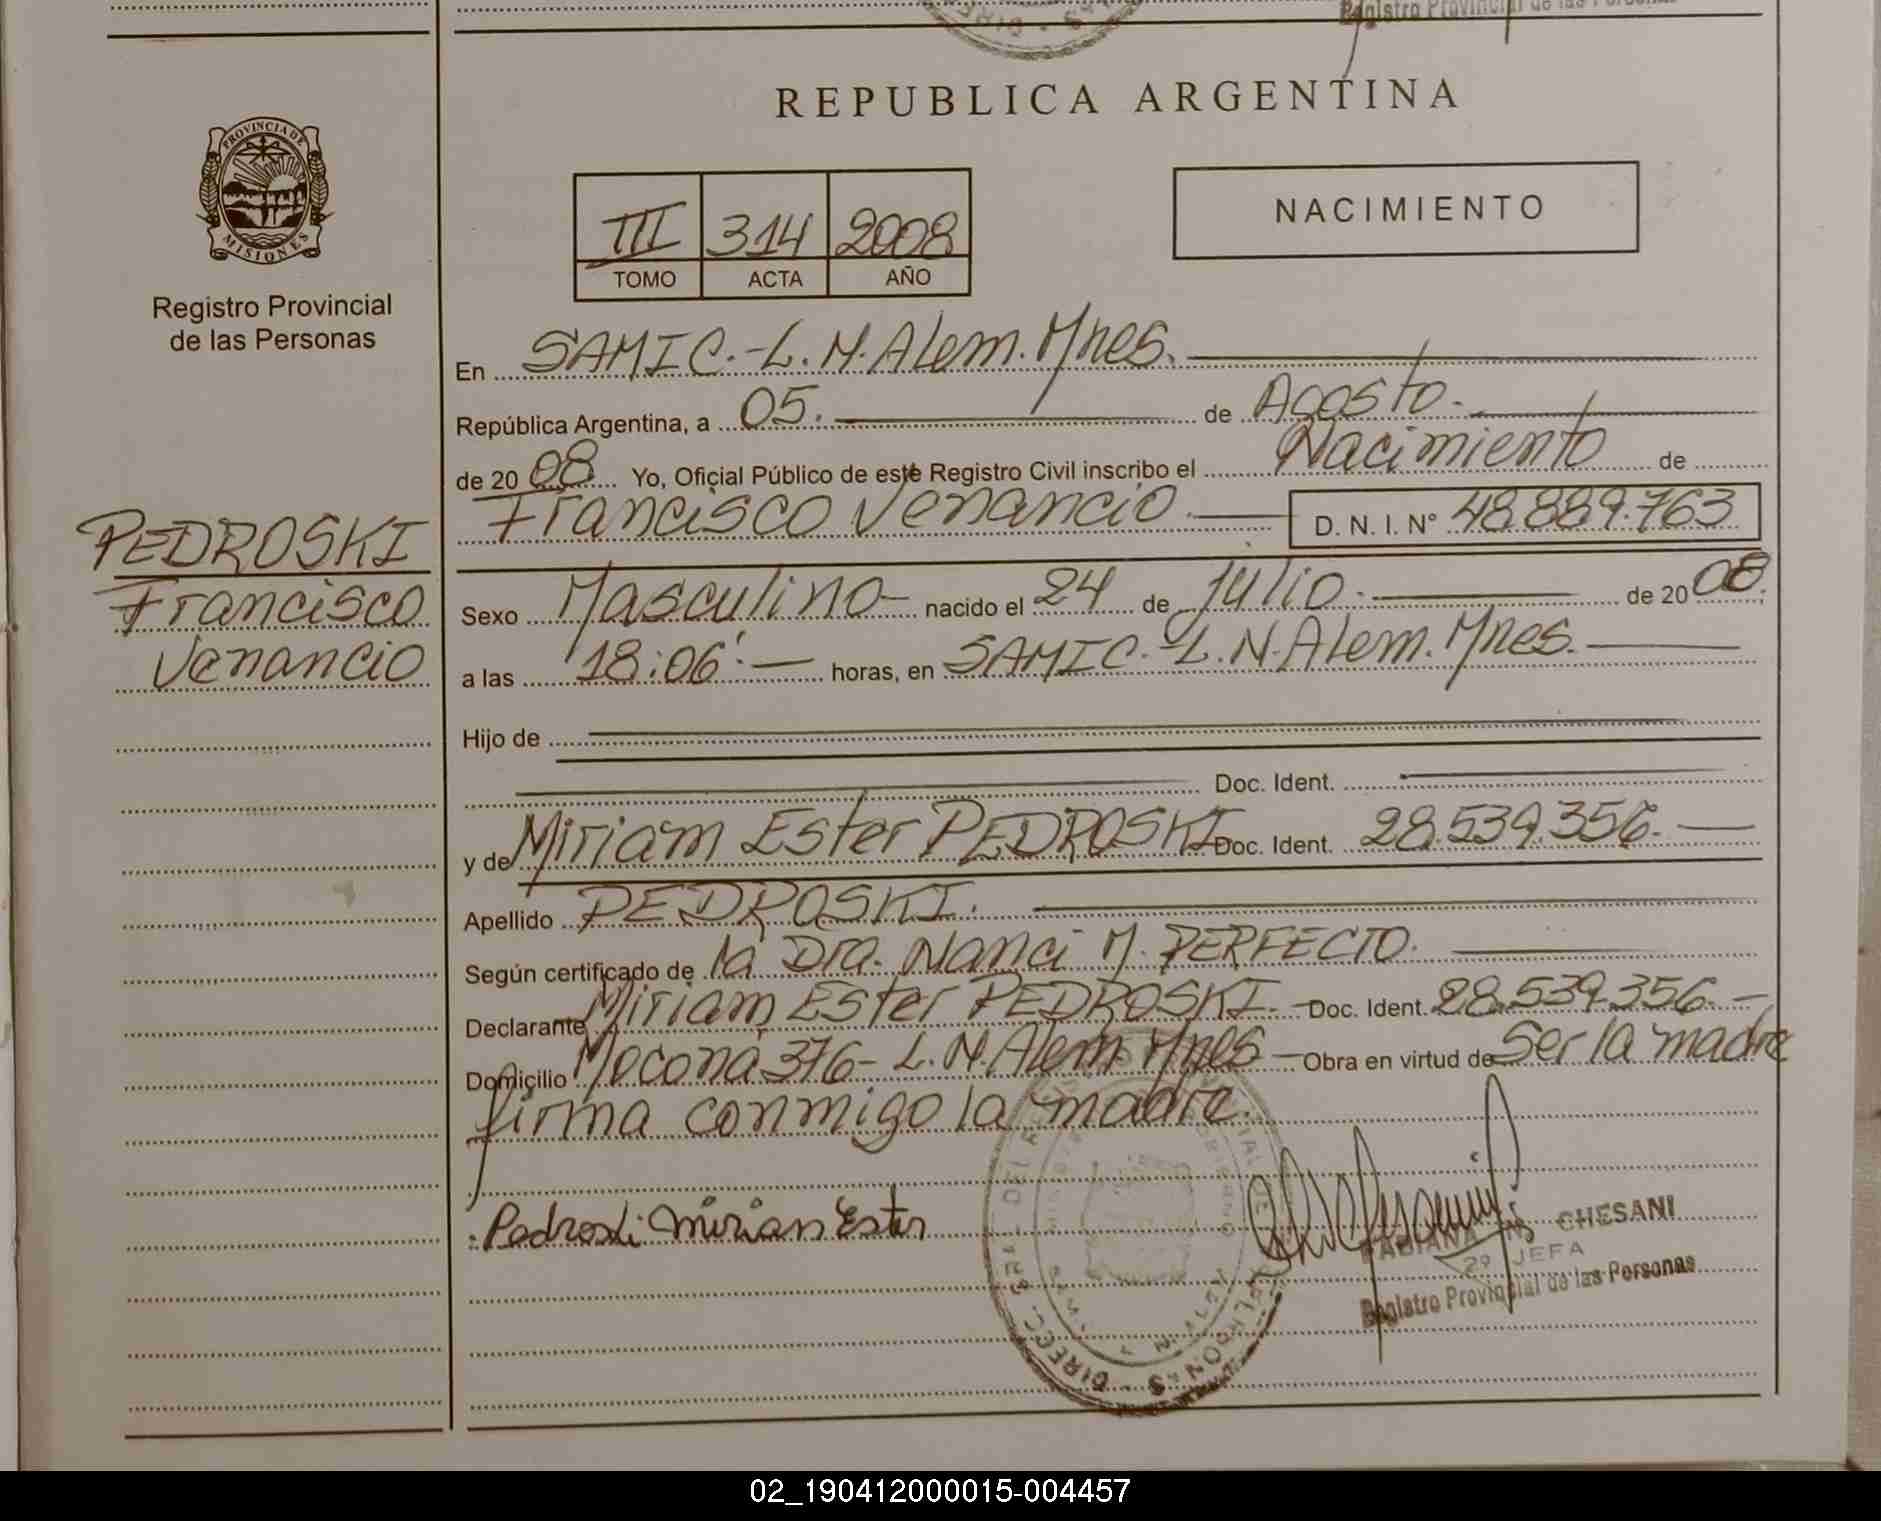 Registro Provincial de las Personas
REPUBLICA ARGENTINA
PROVINCIA DE
MISIONES
Registro Provincial
de las Personas
III 314 2008
TOMO ACTA AÑO
NACIMIENTO
En SAMIC.-L.N.Alem.Mnes.
República Argentina, a 05. de Agosto.-
de 2008 Yo, Oficial Público de este Registro Civil inscribo el Nacimiento de
Francisco Venancio. D. N. I. N° 48.889.763
PEDROSKI
Francisco
Venancio
Sexo Masculino- nacido el 24 de Julio.- de 2008.
a las 18:06'.- horas, en SAMIC.-L.N.Alem.Mnes.
Hijo de
Doc. Ident.
y de Miriam Ester PEDROSKI Doc. Ident. 28.539.356.-
Apellido PEDROSKI.
Según certificado de la Dra. Nanci M. PERFECTO.
Declarante Miriam Ester PEDROSKI.- Doc. Ident. 28.539.356.-
Domicilio Mocona 376- L.N.Alem Mnes - Obra en virtud de Ser la madre
firma conmigo la madre.
Pedroski Mirian Ester
FABIANA CHESANI
JEFA
Registro Provincial de las Personas
02_190412000015-004457